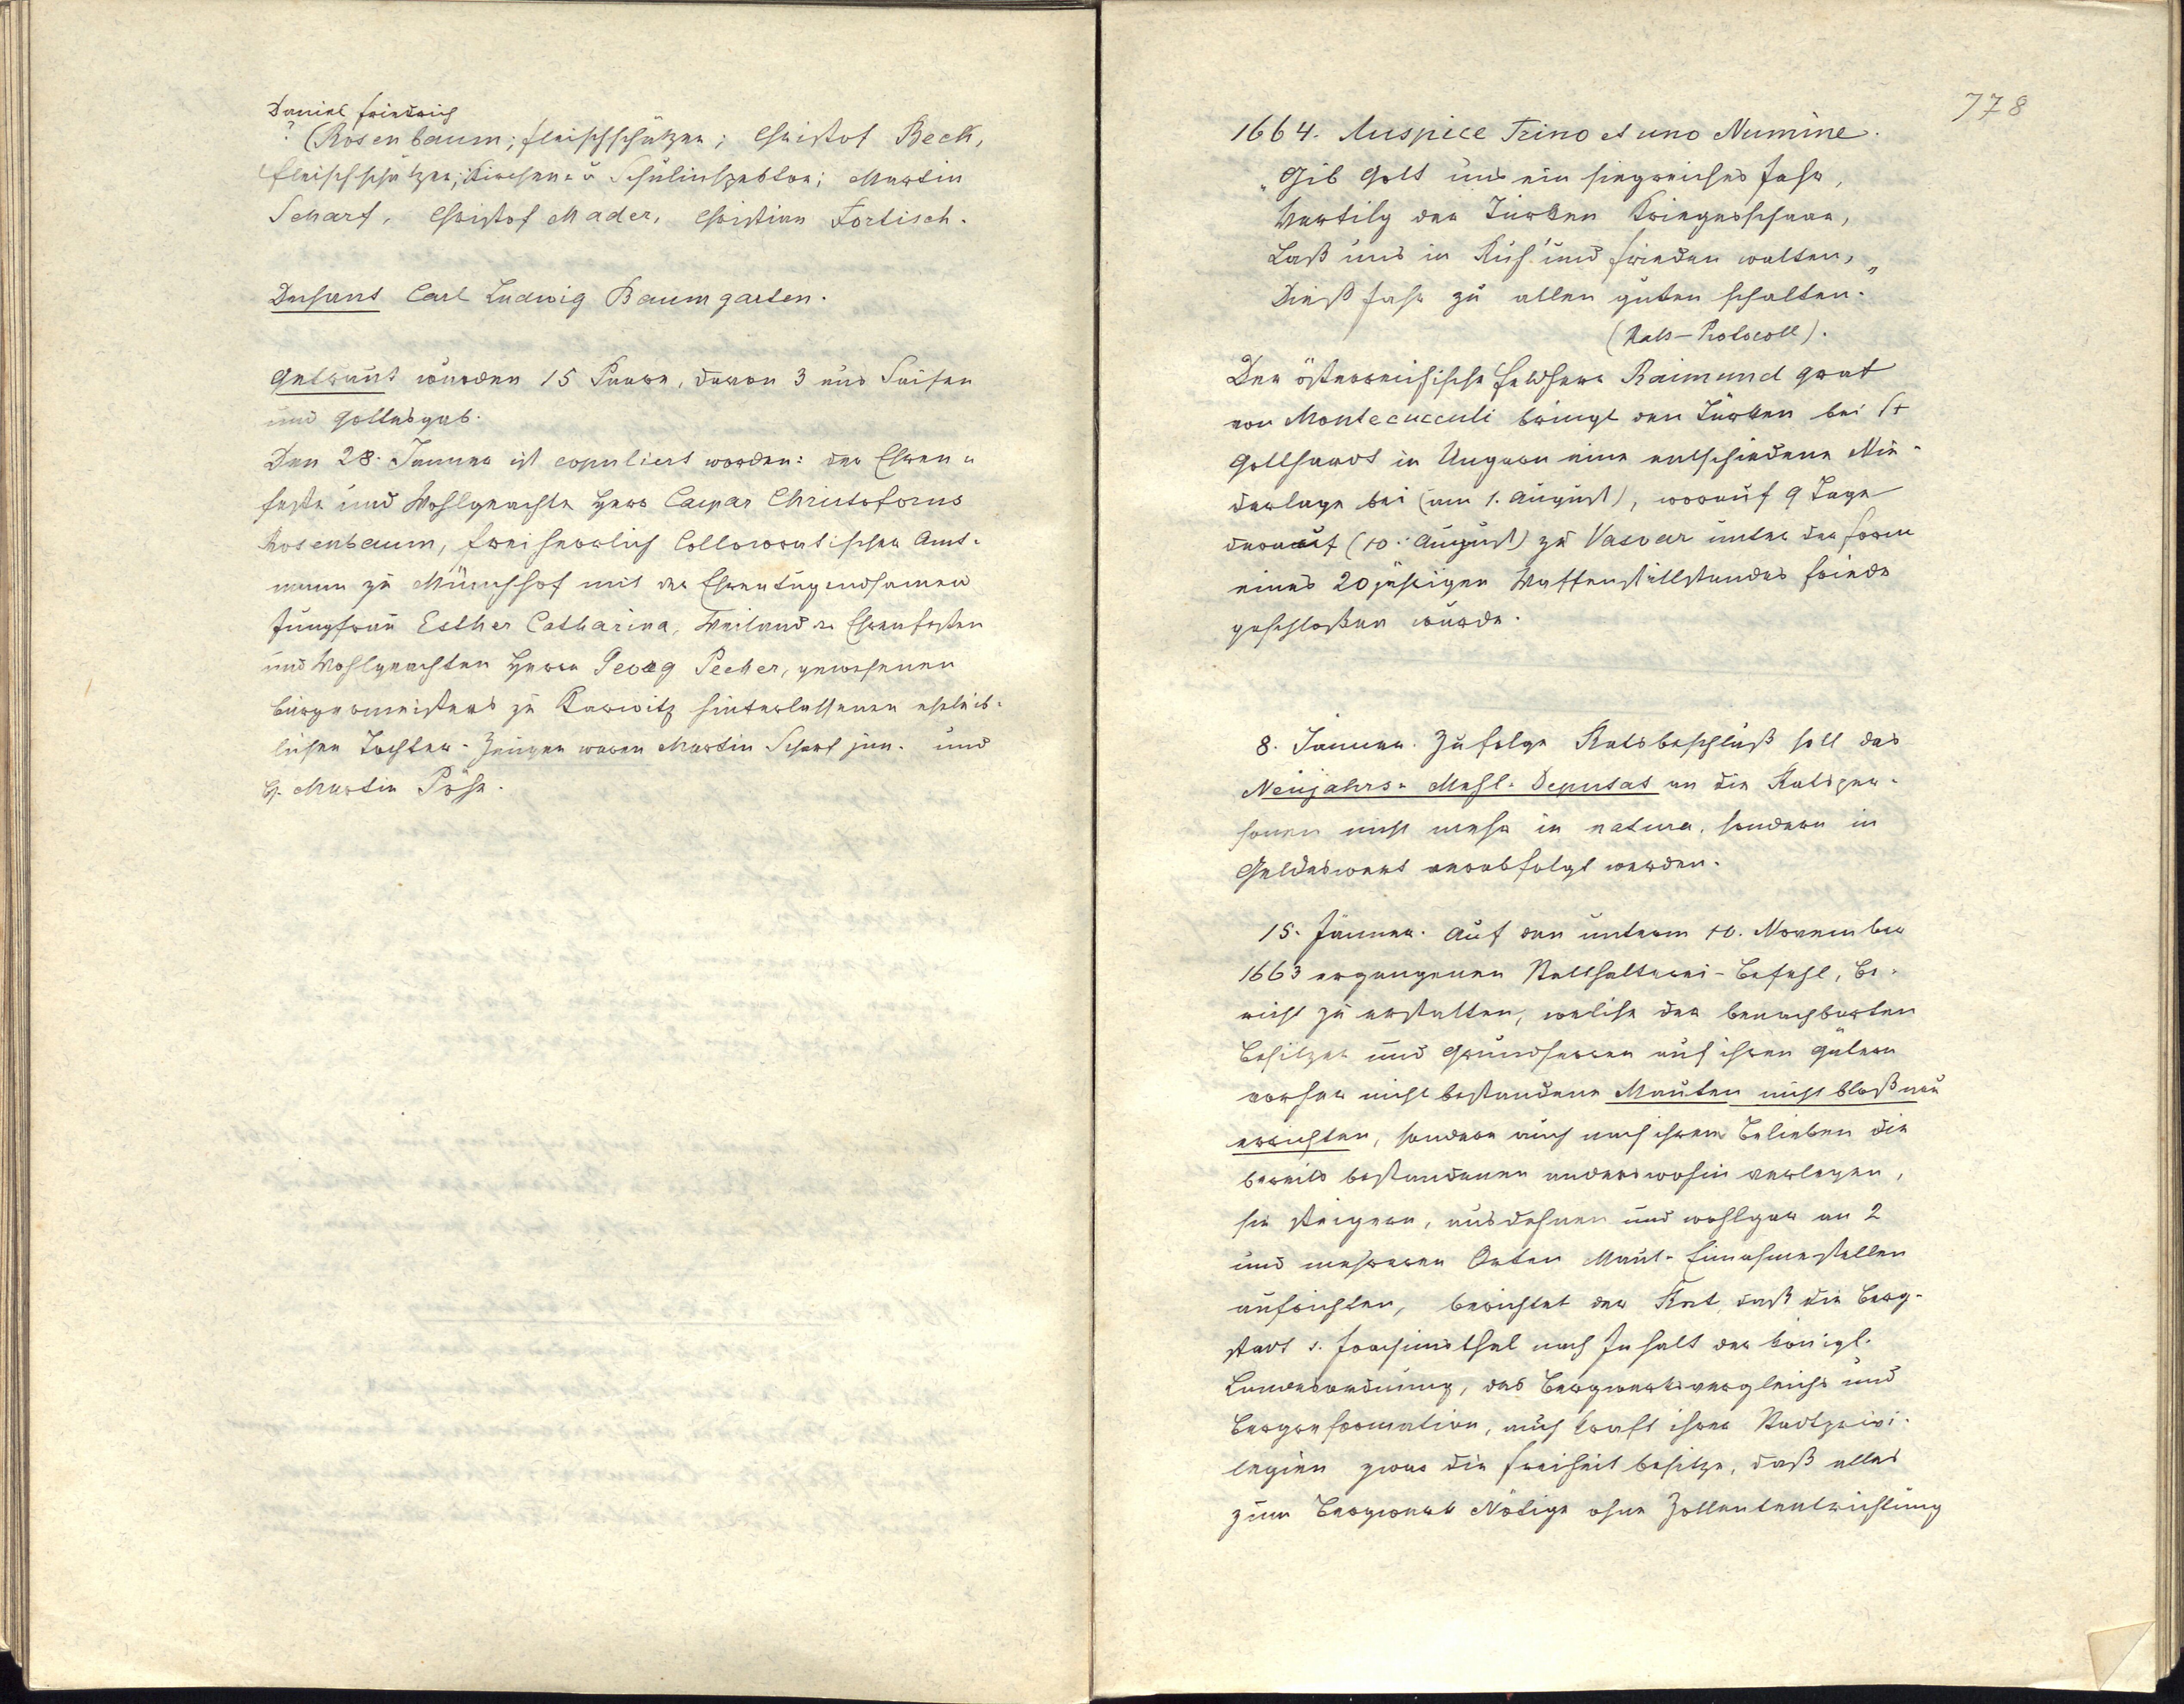 Daniel Friedrich
? (Rosenbaum; Fleischschätzer; Christof Beck,
Fleischschätzer, Kirchen- u Schulinspektor; Martin
Scharf, Christof Mader, Christian Fortisch.
Dechant Carl Ludwig Baumgarten.
Getraut wurden 15 Paare, davon 3 aus Seifen
und Gottesgab.
Den 28. Jänner ist copuliert worden: der Ehren-
feste und Wohlgeachte Herr Caspar Christoforus
Rosenbaum, freiherrlich Collowratischer Amt-
mann zu Münchhof mit der Ehrentugendsamen
Jungfrau Esther Catharina, Weiland des Ehrenfesten
und Wohlgeachten Herrn Georg Pecher, gewesenen
Bürgermeisters zu Karwitz hinterlassenen eheleib-
lichen Tochter. Zeugen waren Martin Scharf jun. und
H. Martin Pöhr.
778
1664. Auspice Trino et uno Numine.
„Gib Gott uns ein siegreiches Jahr,
Vertilg der Türken Kriegesschaar,
Laß uns in Ruh' und Frieden walten,
Dieß Jahr zu allen guten schalten.„
(Rats-Protocoll).
Der österreichische Feldherr Raimund Graf
von Montecucculi bringt den Türken bei St
Gotthardt in Ungarn eine entschiedene Nie-
derlage bei (am 1. August), worauf 9 Tage
darauf (10. August) zu Vasvar unter der Form
eines 20jährigen Waffenstillstandes Friede
geschloßen wurde.
8. Jänner. Zufolge Ratsbeschluß soll das
Neujahrs- Mehl- Deputat an die Ratsper-
sonen nicht mehr in natura, sondern in
Geldeswert verabfolgt werden.
15. Jänner. Auf den unterm 10. November
1663 ergangenen Statthalterei-Befehl, Be-
richt zu erstatten, welche der benachbarten
Besitzer und Grundherren auf ihren Gütern
vorher nicht bestandene Mauten nicht bloß neu
errichten, sondern auch nach ihrem Belieben die
bereits bestandenen anderswohin verlegen,
sie steigern, ausdehnen und wohlgar an 2
und mehreren Orten Maut- Einnahmestellen
aufrichten, berichtet der Rat, daß die Berg-
stadt s. Joachimsthal nach Inhalt der königl.
Landesordnung, des Bergwerksvergleichs und
Bergreformation, auch kraft ihrer Stadtprivi-
legien zwar die Freiheit besitze, daß alles
zum Bergwerk Nötige ohne Zollententrichtung